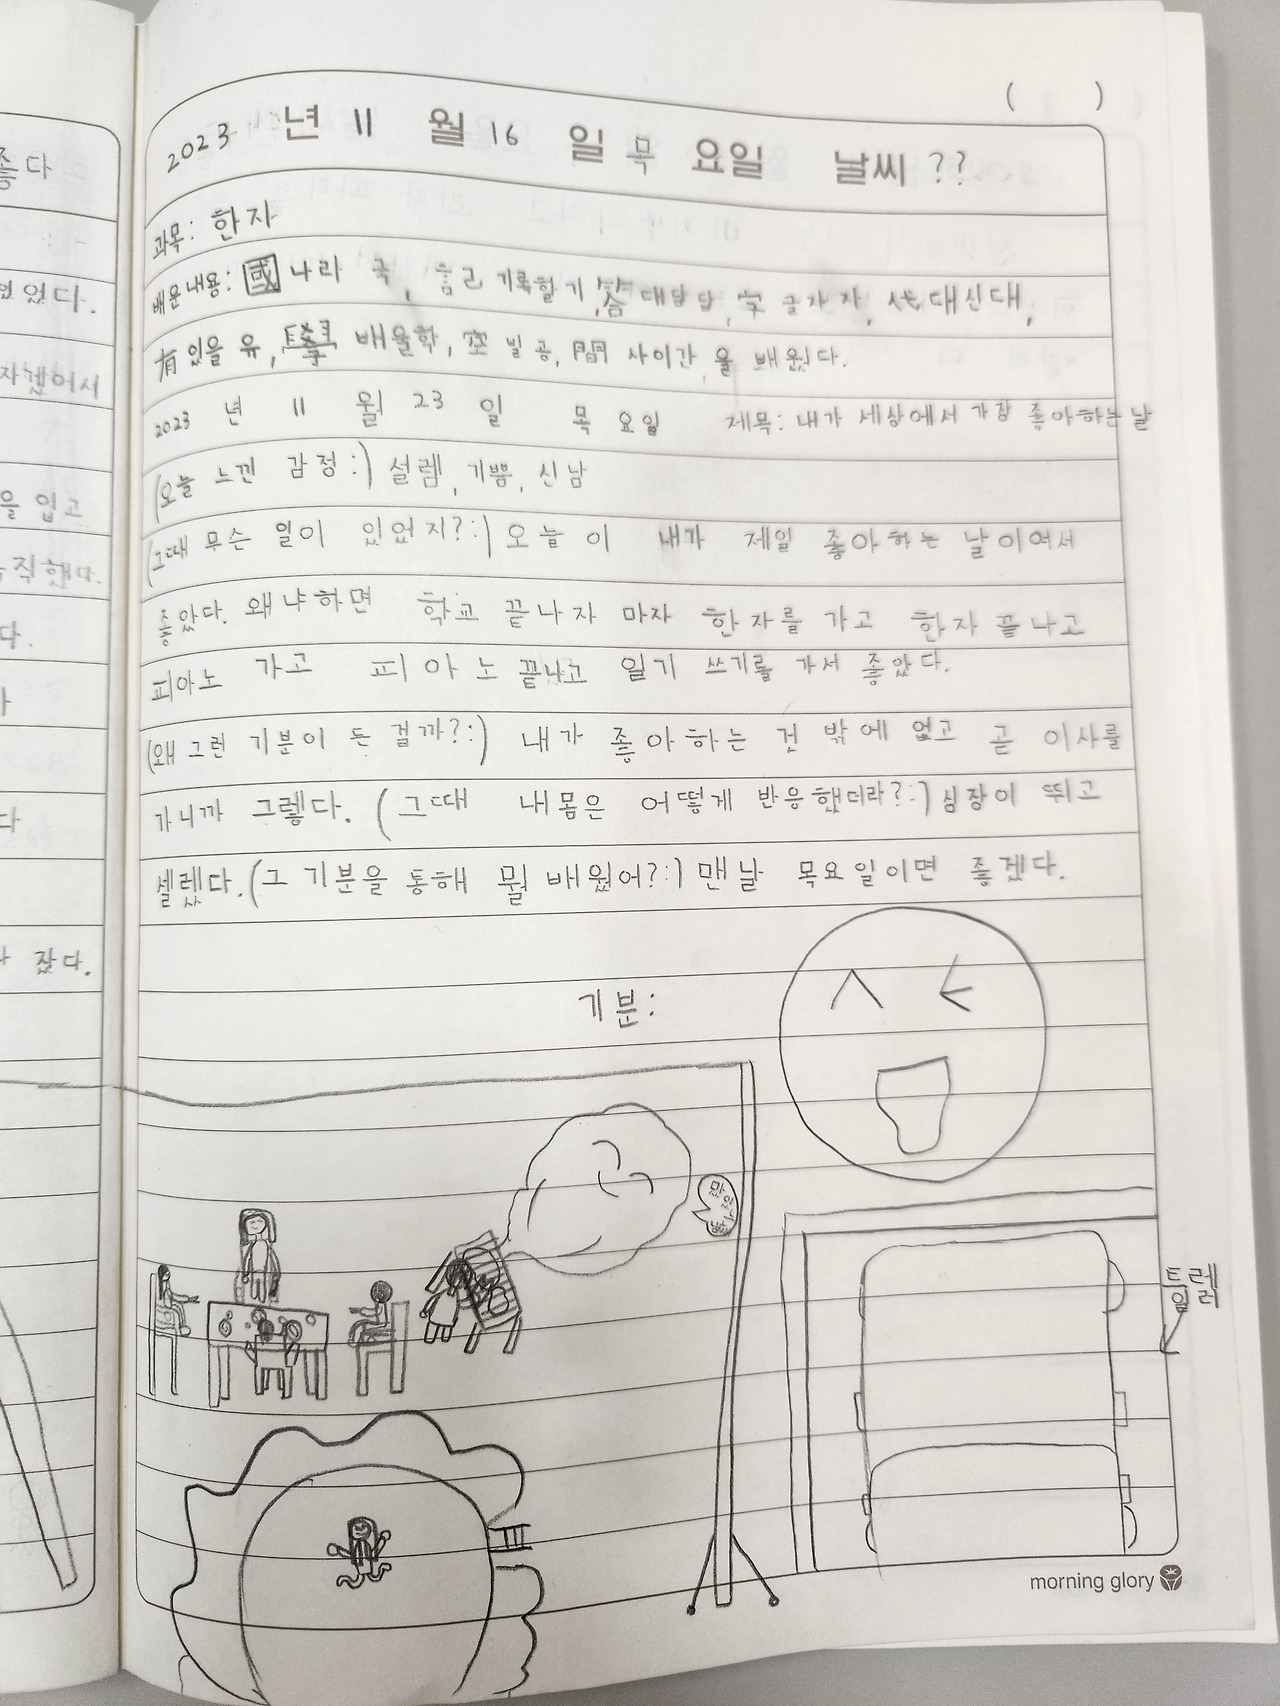 ( )
2023 년 11 월 16 일 목 요일 날씨 ??
과목: 한자
배운내용: 國 나라 국, 記 기록할 기, 答 대답 답, 字 글자 자, 代 대신 대,
有 있을 유, 學 배울 학, 空 빌 공, 間 사이 간 을 배웠다.
2023 년 11 월 23 일 목 요일 제목: 내가 세상에서 가장 좋아하는 날
(오늘 느낀 감정:) 설렘, 기쁨, 신남
(그때 무슨 일이 있었지?:) 오늘 이 내가 제일 좋아하는 날이여서
좋았다. 왜냐하면 학교 끝나자 마자 한자를 가고 한자 끝나고
피아노 가고 피아노 끝나고 일기 쓰기를 가서 좋았다.
(왜 그런 기분이 든 걸까?:) 내가 좋아하는 것 밖에 없고 곧 이사를
가니까 그렇다. (그때 내몸은 어떻게 반응했더라?:) 심장이 뛰고
셀렜다. (그 기분을 통해 뭘 배웠어?:) 맨날 목요일이면 좋겠다.
기분:
트레
일러
morning glory
좋다
었었다.
자겠어서
을 입고
직했다.
다.
다
잤다.